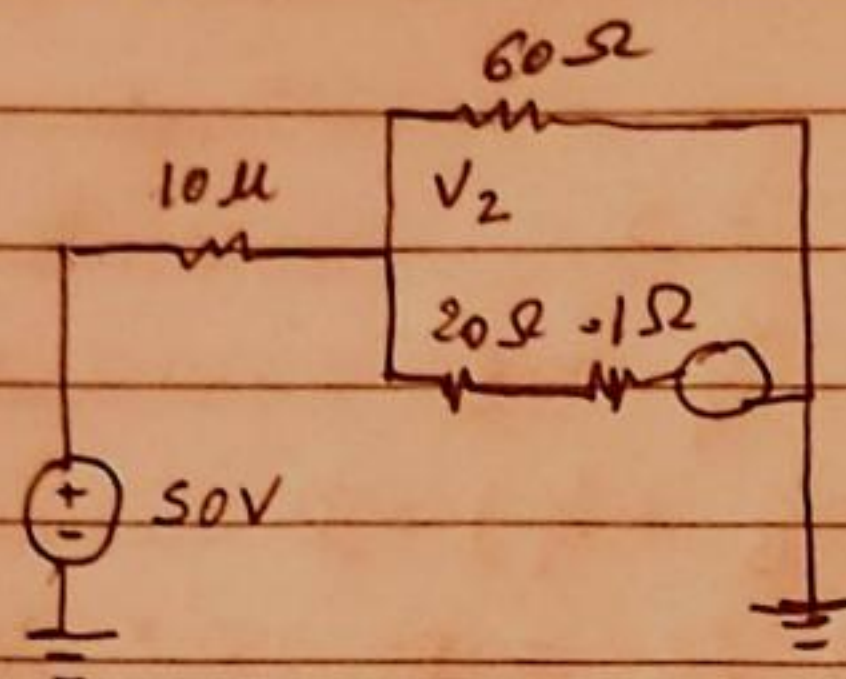 60Ω
10 µ
V2
20Ω .1Ω
+
-
50V